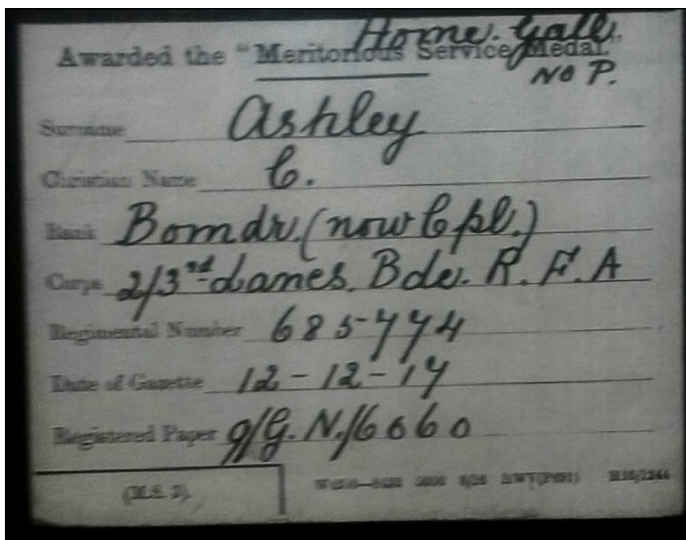 Home. Gall.
Awarded the "Meritorious Service Medal."
No P.
Surname Ashley
Christian Name C.
Rank Bomdr. (now Cpl.)
Corps 2/3rd Lancs. Bde. R. F. A
Regimental Number 685774
Date of Gazette 12-12-17
Registered Paper 9/G.N./6060